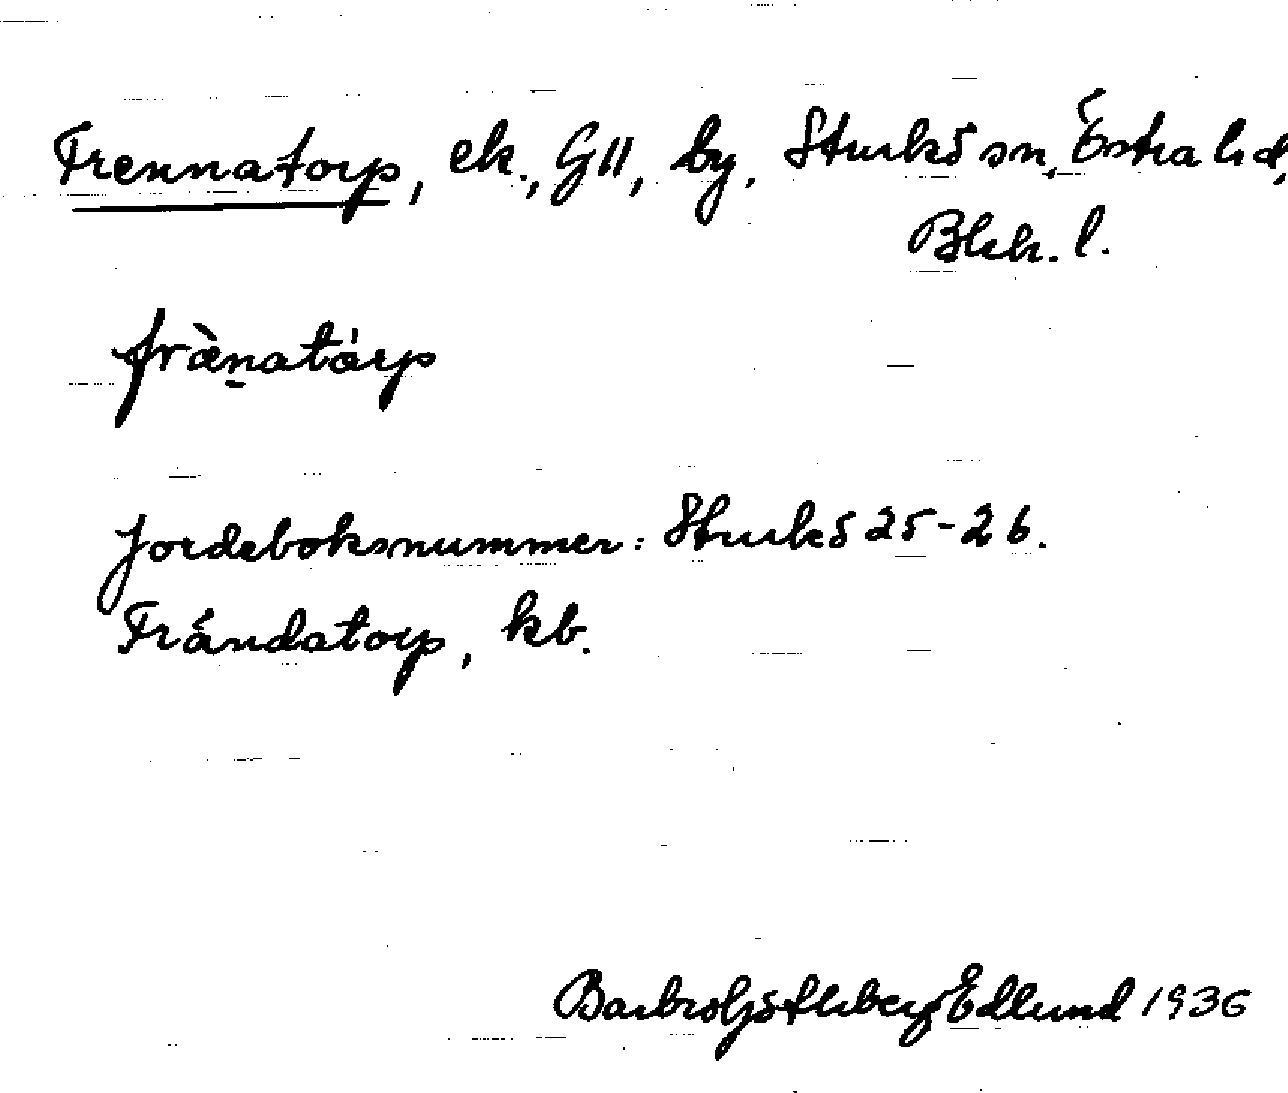 Frennatorp, ek., GII, by, Sturkö sn, Östra hd,
Blek. l.
fræ̀natårp
Jordeboksnummer: Sturkö 25-26.
Frändatorp, kb.
Barbro Götlberg Edlund 1936